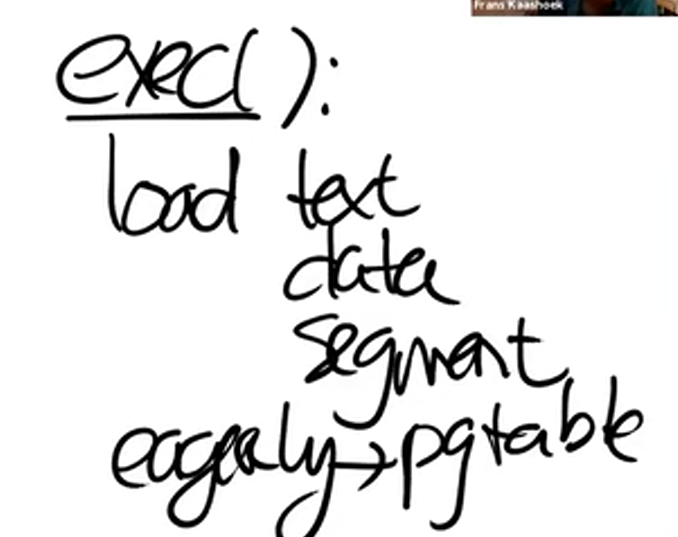 Frans Kaashoek
exec():
load text
data
segment
eagerly → pgtable